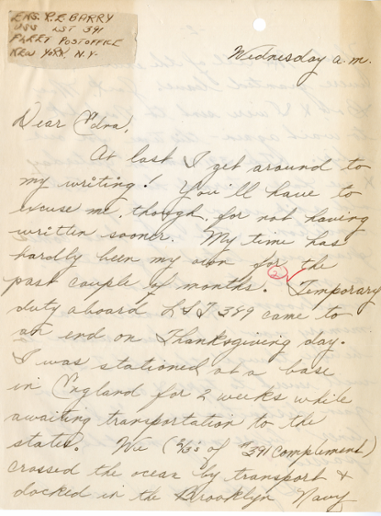 ENS. R.E. BARRY
USS LST 391
FLEET POSTOFFICE
NEW YORK, N.Y.
Wednesday a.m.
Dear Edna,
At last I get around to
my writing! You'll have to
excuse me, though, for not having
written sooner. My time has
hardly been my own for the
past couple of months. Temporary
duty aboard LST 389 came to
an end on Thanksgiving day.
I was stationed at a base
in England for 2 weeks while
awaiting transportation to the
states. We (of #391 Complement)
crossed the ocean by transport &
docked in the Brooklyn Navy